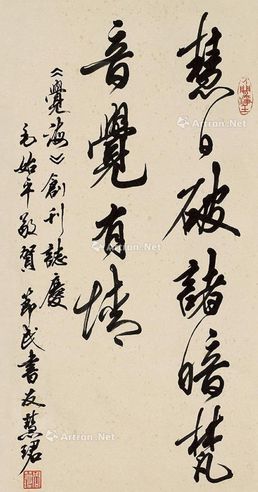 慧日破諸暗梵
音覺有情
《覺海》創刊誌慶
毛始平敬賀 節民書友慧珺
Artron.Net
Artron.Net
Artron.Net
Artron.Net